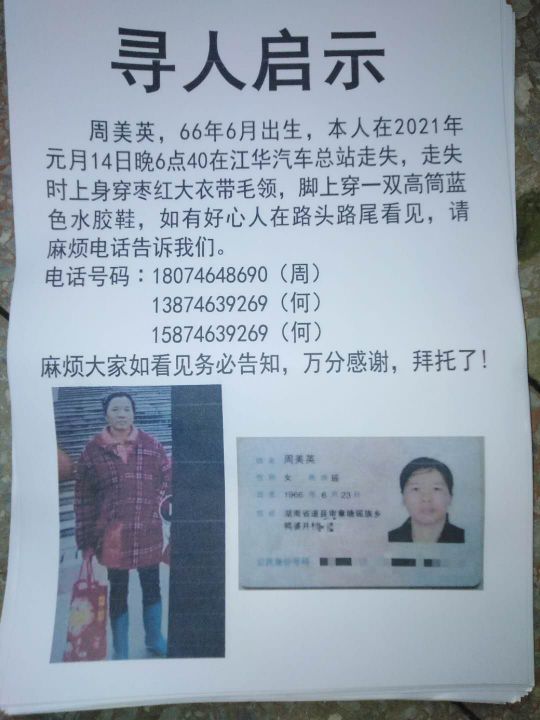 寻人启示
周美英，66年6月出生，本人在2021年
元月14日晚6点40在江华汽车总站走失，走失
时上身穿枣红大衣带毛领，脚上穿一双高筒蓝
色水胶鞋，如有好心人在路头路尾看见，请
麻烦电话告诉我们。
电话号码：18074648690（周）
13874639269（何）
15874639269（何）
麻烦大家如看见务必告知，万分感谢，拜托了！
姓名 周美英
性别 女 民族 瑶
出生 1966 年 6 月 23 日
住址 湖南省道县审章塘瑶族乡
鸭婆井村
公民身份号码